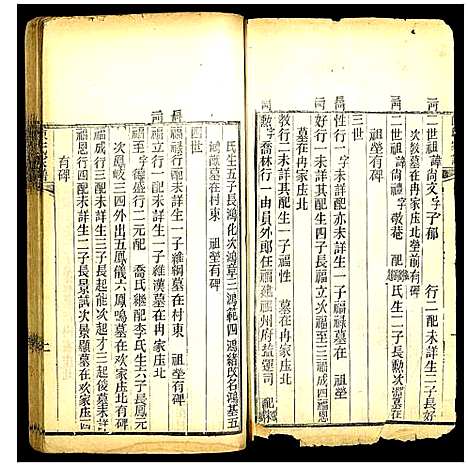 二世祖諱尚文字子郁 行一配未詳生二子長好
二世祖諱尚禮字敬菴 配 氏生二子長勲次
教墓在冉家庄北塋前有碑
祖塋有碑
三世
好行一字未詳其配亦未詳生一子福祿墓在 祖塋
性行一未詳其配生四子長福立次福三福成四福恩
墓在冉家庄北
教行二未詳其配生一子福性 墓在冉家庄北
勲字喬林行一由員外郎任福建福州府鹽運司 配
氏生五子長鴻化次鴻草三鴻範四鴻緒改名鴻基五
鴻猷墓在村東 祖塋有碑
四世
福祿行一配未詳生一子維綱墓在村東 祖塋有碑
福立行一配未詳生一子維漢墓在冉家庄北
福性字德盛行二元配 喬氏繼配李氏生六子長鳳元
次鳳岐三四外出五鳳儀六鳳鳴墓在欢家庄北有碑
福成行三配未詳生三子長起能次起才三起後
福恩行四配未詳生二子長景試次景顯墓在欢家庄西
有碑